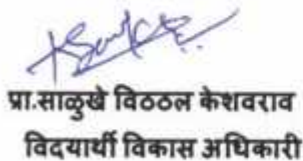 प्रा.साळुखे विठठल केशवराव
विदयार्थी विकास अधिकारी